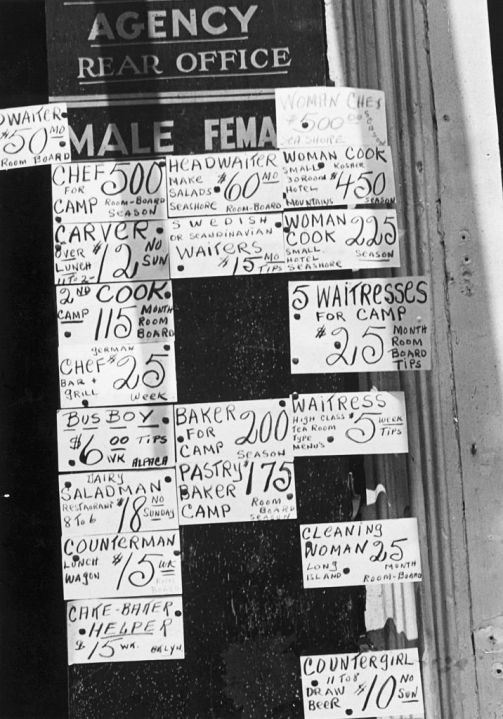 AGENCY
REAR OFFICE
MALE FEMA
WAITER
$50 MO
ROOM BOARD
CHEF 500
FOR
CAMP ROOM-BOARD
SEASON
CARVER
OVER $12 NO
LUNCH SUN
11 TO 2
2ND COOK
CAMP 115 MONTH
ROOM
BOARD
GERMAN
CHEF $25
BAR +
GRILL WEEK
BUS BOY
$6 00 TIPS
WK ALPACA
DAIRY
SALADMAN
RESTAURANT $18 NO
8 TO 6 SUNDAY
COUNTERMAN
LUNCH $15 WK
WAGON
CAKE-BAKER
HELPER
$15 WK. BKLYN
HEADWAITER
MAKE $60 MO
SALADS
SEASHORE ROOM-BOARD
SWEDISH
OR SCANDINAVIAN
WAITERS
$15 MO
TIPS
BAKER 200
FOR
CAMP SEASON
PASTRY $175
BAKER
CAMP ROOM
BOARD
SEASON
WOMAN CHEF
$500 00
SEASON
SEASHORE
WOMAN COOK
SMALL KOSHER
30 ROOM $450
HOTEL
MOUNTAINS SEASON
WOMAN 225
COOK
SMALL SEASON
HOTEL
SEASHORE
5 WAITRESSES
FOR CAMP
$25 MONTH
ROOM
BOARD
TIPS
WAITRESS
HIGH CLASS $5 WEEK
TEA ROOM TIPS
TYPE
MENU'S
CLEANING
WOMAN 25
LONG MONTH
ISLAND ROOM-BOARD
COUNTERGIRL
11 TO 8
DRAW $10 NO
BEER SUN